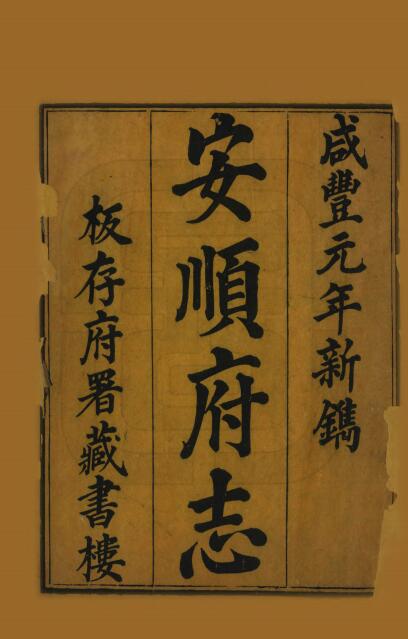 咸豐元年新鐫
安順府志
板存府署藏書樓